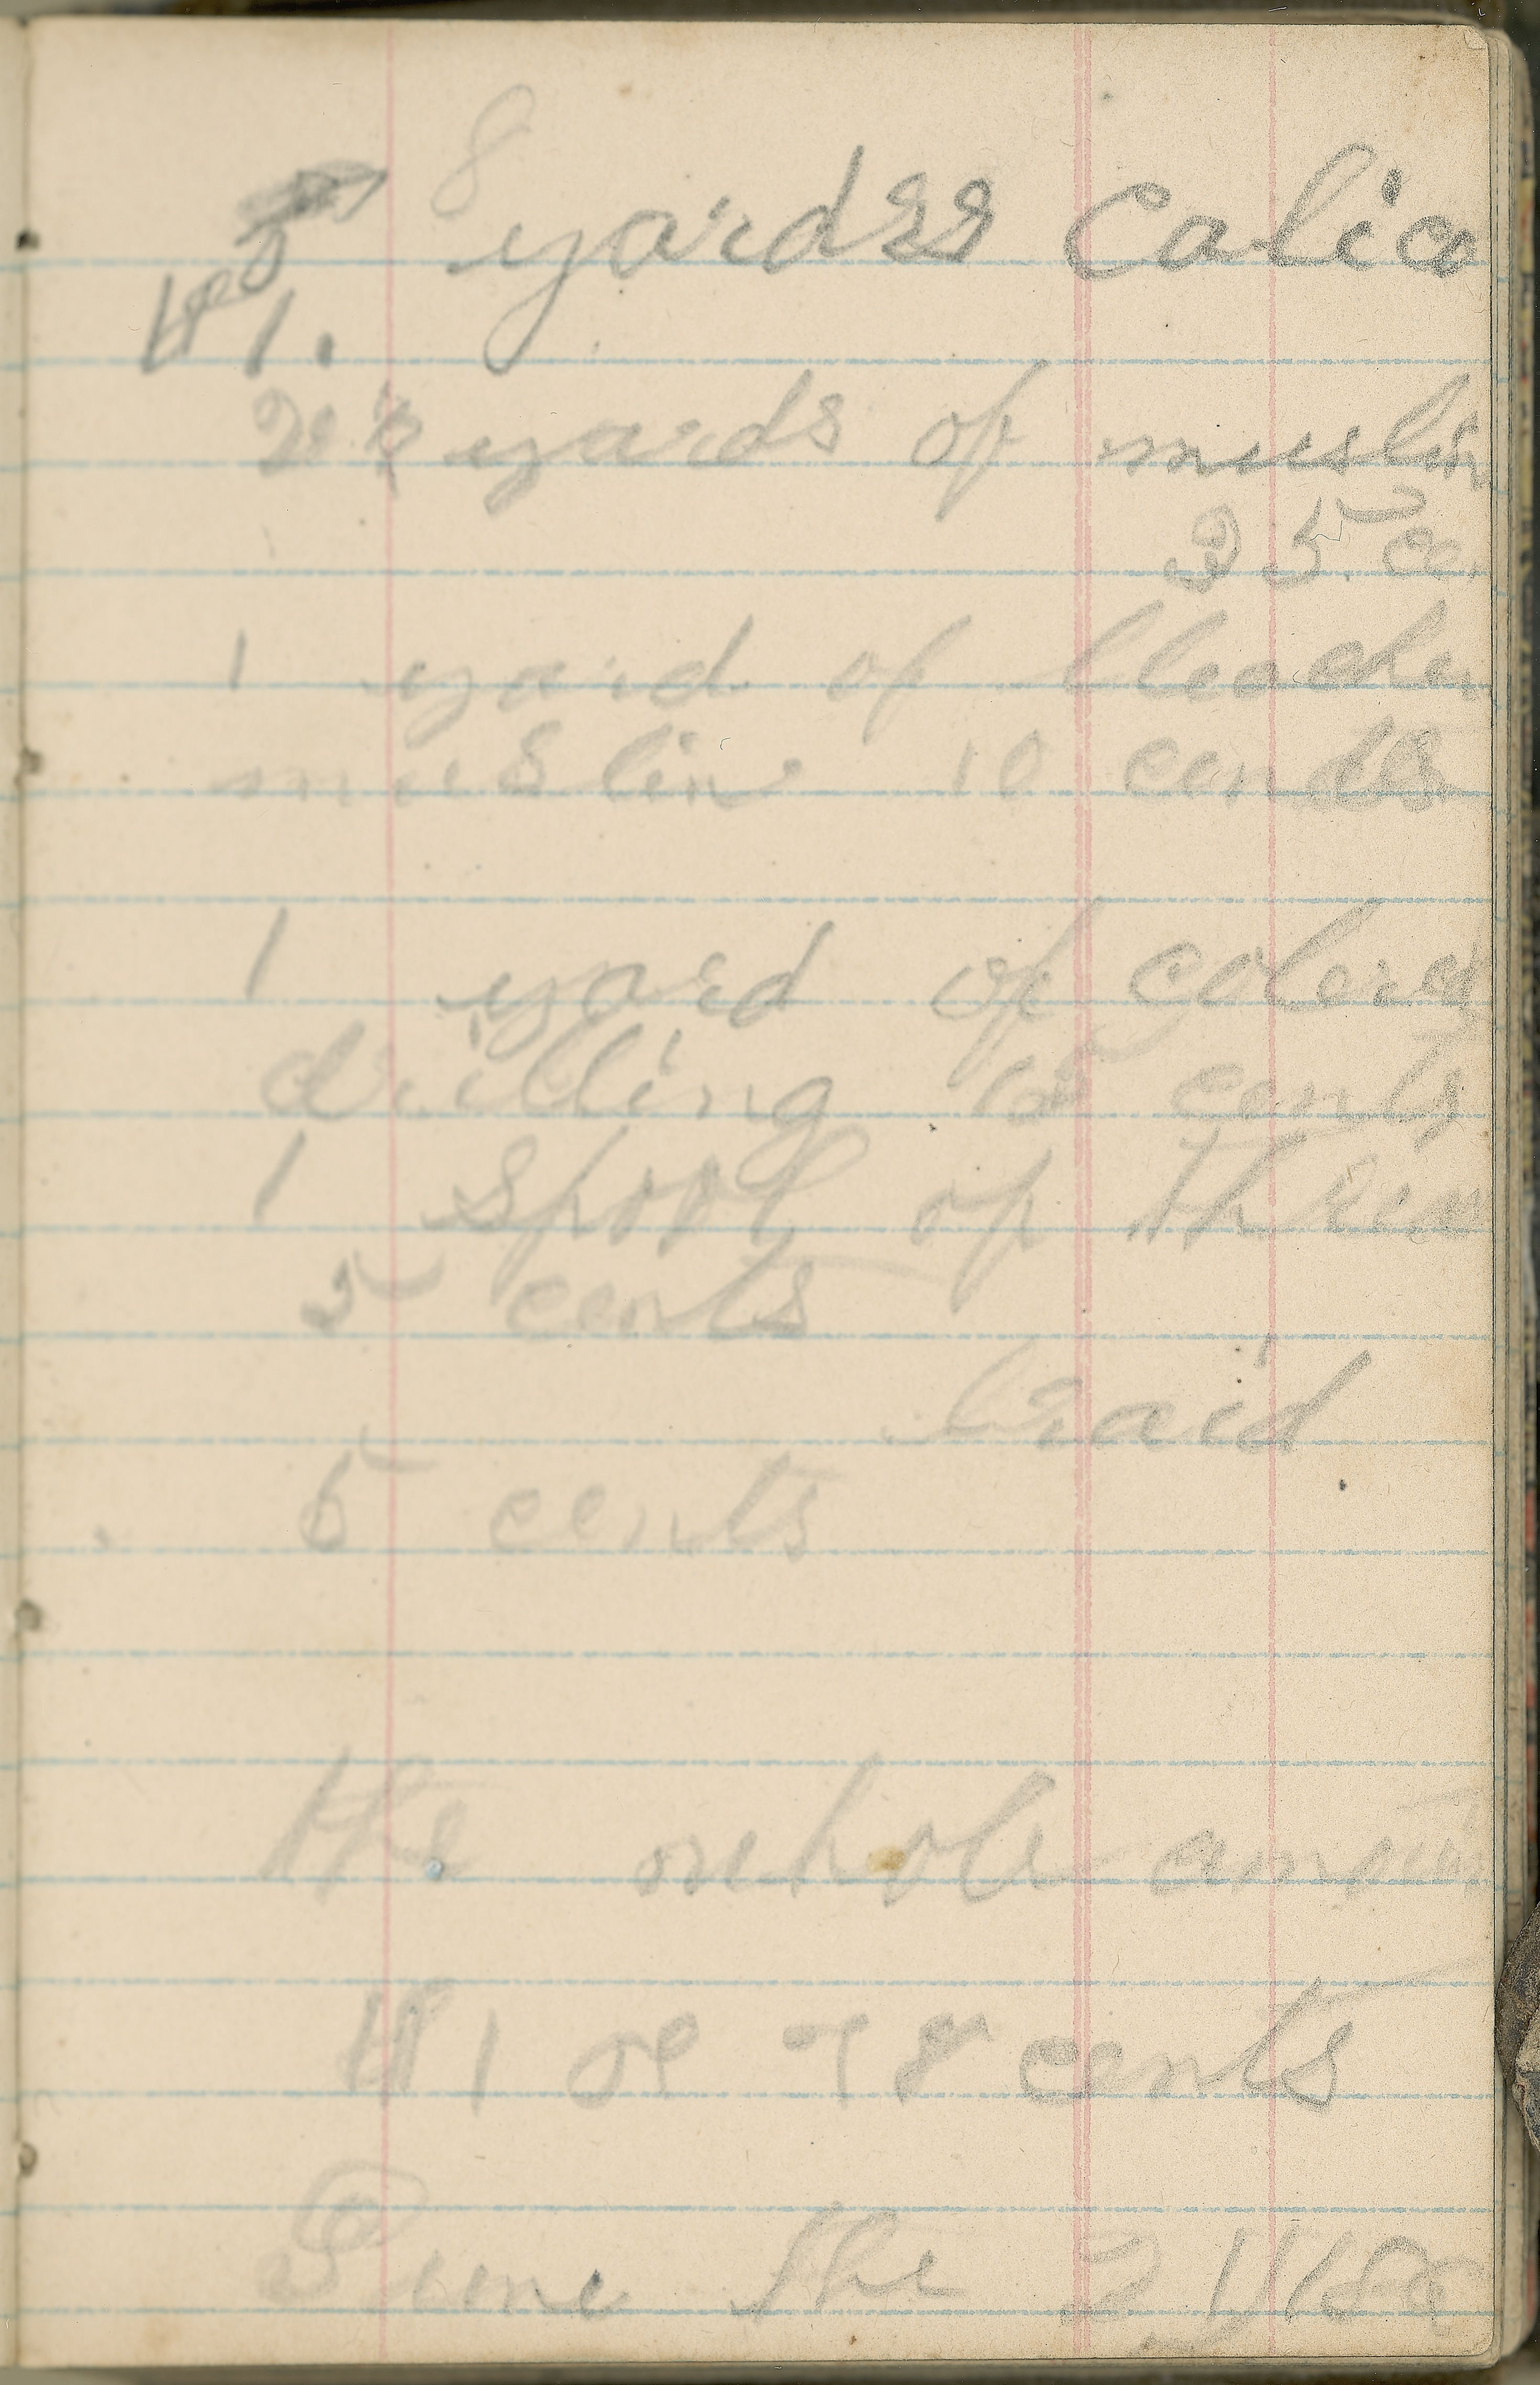 8 yardss Calico
1.
yards of muslin
35 c
1 yard of bleache
muslin 10 cents
1 yard of colered
drilling 15 cents
1 Spool of threa
5 cents
braid
5 cents
the whole amoun
1 78 cents
June the